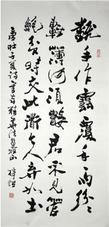 翻手作雲覆手雨紛紛
輕薄何須數君不見管
鮑貧時交此道今人棄如土